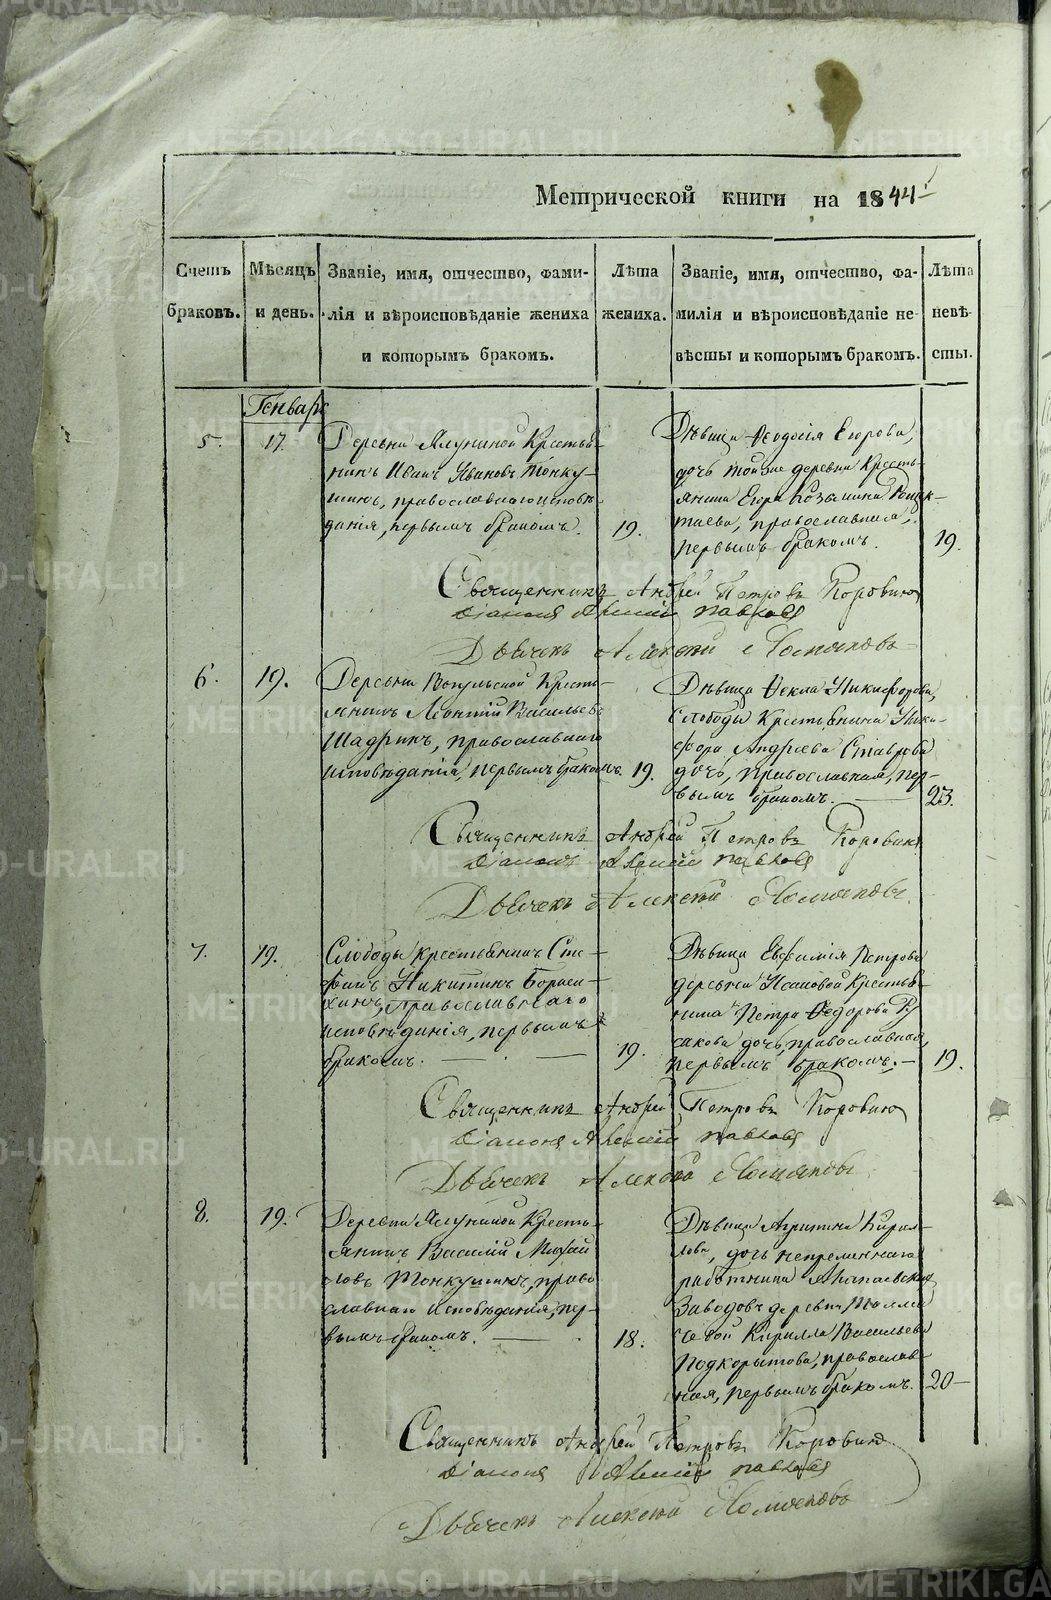 METRIKI.GASO-URAL.RU
Метрической книги на 1844.
Счетъ браковъ.
Мѣсяцъ и день.
Званіе, имя, отчество, фами-
лія и вѣроисповѣданіе жениха
и которымъ бракомъ.
Лѣта жениха.
Званіе, имя, отчество, фа-
милія и вѣроисповѣданіе не-
вѣсты и которымъ бракомъ.
Лѣта невѣ-
сты.
Генварь
5.
17.
Деревни Ялуниной Крестья-
нинъ Иванъ Ивановъ Тонку-
шинъ, православнаго исповѣ-
данія, первымъ бракомъ.
19.
Дѣвица Ѳеодосія Егорова,
дочь той же деревни Кресть-
янина Егора Козьмина
православная,
первымъ бракомъ.
19.
Священникъ Андрей Петровъ Коровинъ
Діаконъ
Дьячекъ Алексѣй
6.
19.
Деревни Вогульской Кресть-
янинъ Леонтій Васильевъ
Шадринъ, православнаго
исповѣданія, первымъ бракомъ.
19.
Дѣвица Ѳекла Никифорова,
Слободы Крестьянина Ники-
фора Андреева Ставрова
дочь, православная, пер-
вымъ бракомъ.
23.
Священникъ Андрей Петровъ Коровинъ
Діаконъ
Дьячекъ Алексѣй
7.
19.
Слободы Крестьянинъ Сте-
фанъ Никитинъ
православнаго
исповѣданія, первымъ
бракомъ.
19.
Дѣвица Евфимія Петрова
деревни Исаковой Крестья-
нина Петра Ѳедорова Ру
сакова дочь, православная,
первымъ бракомъ.
19.
Священникъ Андрей Петровъ Коровинъ
Діаконъ
Дьячекъ Алексѣй
8.
19.
Деревни Ялуниной Кресть-
янинъ Василій Михай
ловъ Тонкушинъ, право
славнаго исповѣданія, пер-
вымъ бракомъ.
18.
Дѣвица Агрипина Кирил-
лова, дочь непремѣннаго
работника Алапаевскихъ
Заводовъ деревни
Кирилла Васильева
Подкорытова, православ-
ная, первымъ бракомъ.
20
Священникъ Андрей Петровъ Коровинъ
Діаконъ
Дьячекъ Алексѣй